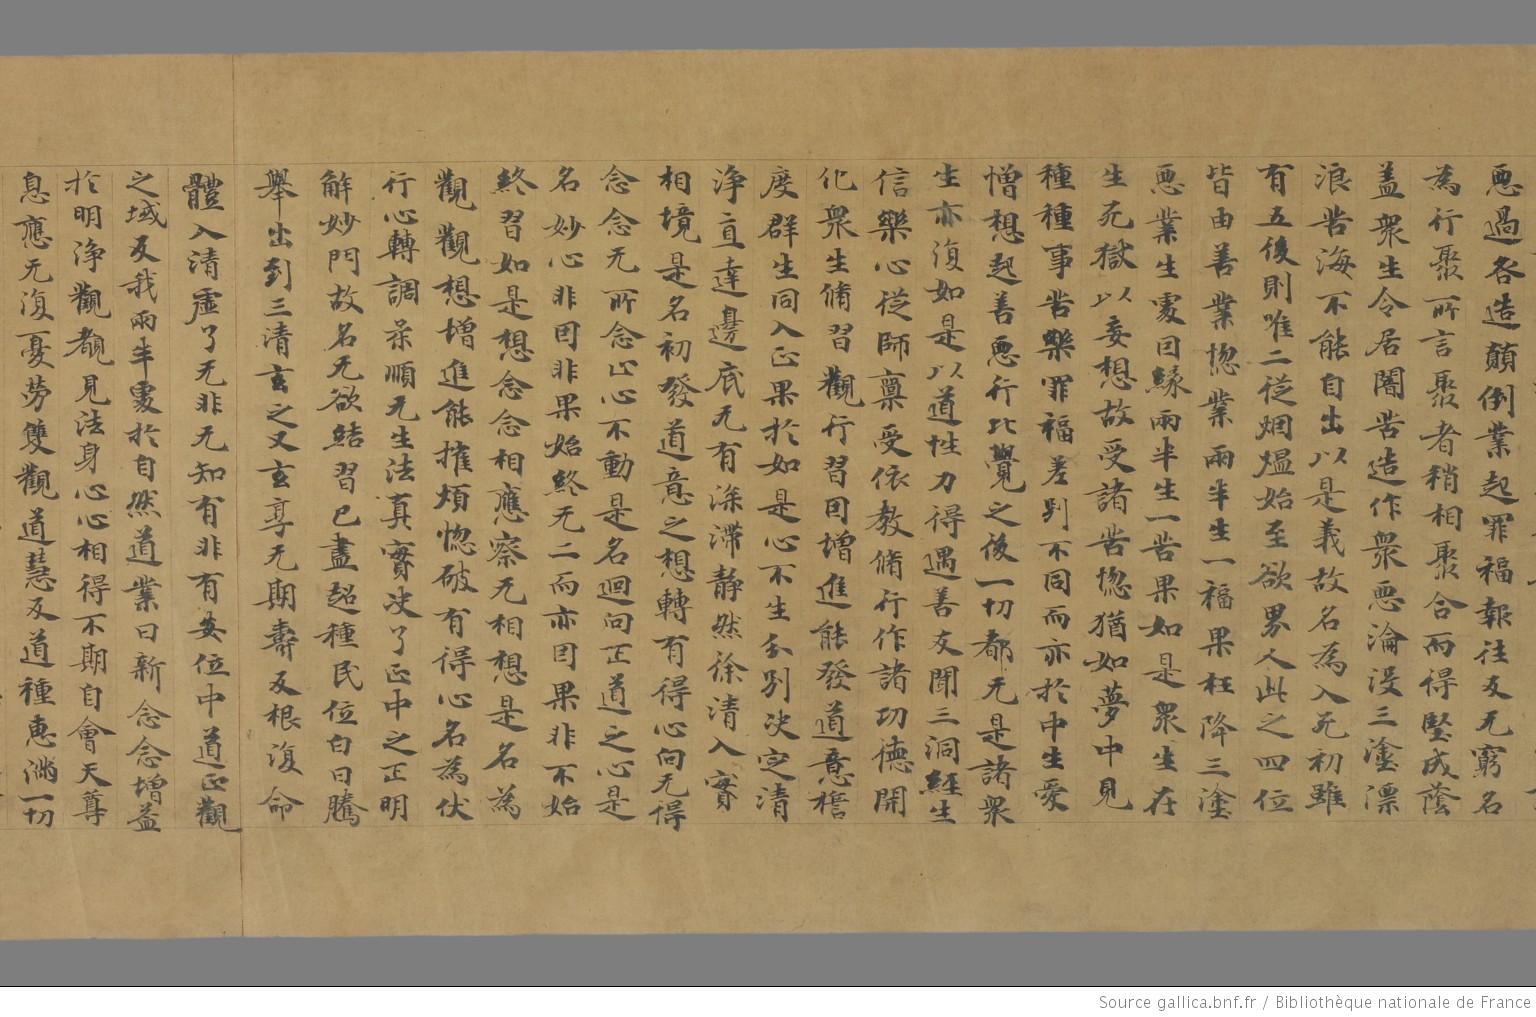 悪過各造顛倒業起罪福報往友无窮名
為行聚所言聚者稍相聚合而得堅成蔭
盖衆生令居闇苦造作衆悪淪没三塗漂
浪苦海不能自出以是義故名為入死初雖
有五後則唯二従烟熅始至欲界人此之四位
皆由善業惣業兩半生一福果枉降三塗
悪業生䖏因縁兩半生一苦果如是衆生在
生死獄以妄想故受諸苦惣猶如夢中見
種種事苦樂罪福差别不同而亦於中生愛
憎想起善悪行比覺之後一切都无是諸衆
生亦復如是以道性力得遇善友聞三洞經生
信樂心従師禀受依教脩行作諸功德開
化衆生脩習觀行習因增進能發道意穭
度群生同入正果於如是心不生分别决定清
淨直達邊底无有滓滯静然徐清入實
相境是名初發道意之想轉有得心向无得
念念无所念止心不動是名迴向正道之心是
名妙心非因非果始終无二而亦因果非不始
終習如是想念念相應察无相想是名為
觀觀想增進能摧煩惣破有得心名為伏
行心轉調柔順无生法真實决了正中之正明
解妙門故名无欲結習已盡超種民位白日騰
舉出到三清玄之又玄享无期壽反根復命
體入清虛了无非无知有非有安位中道正觀
之域反我兩半䖏於自然道業日新念念增益
於明淨觀覩見法身心心相得不期自會天尊
息應无復憂勞雙觀道慧及道種惠滿一切
Source gallica.bnf.fr / Bibliothèque nationale de France